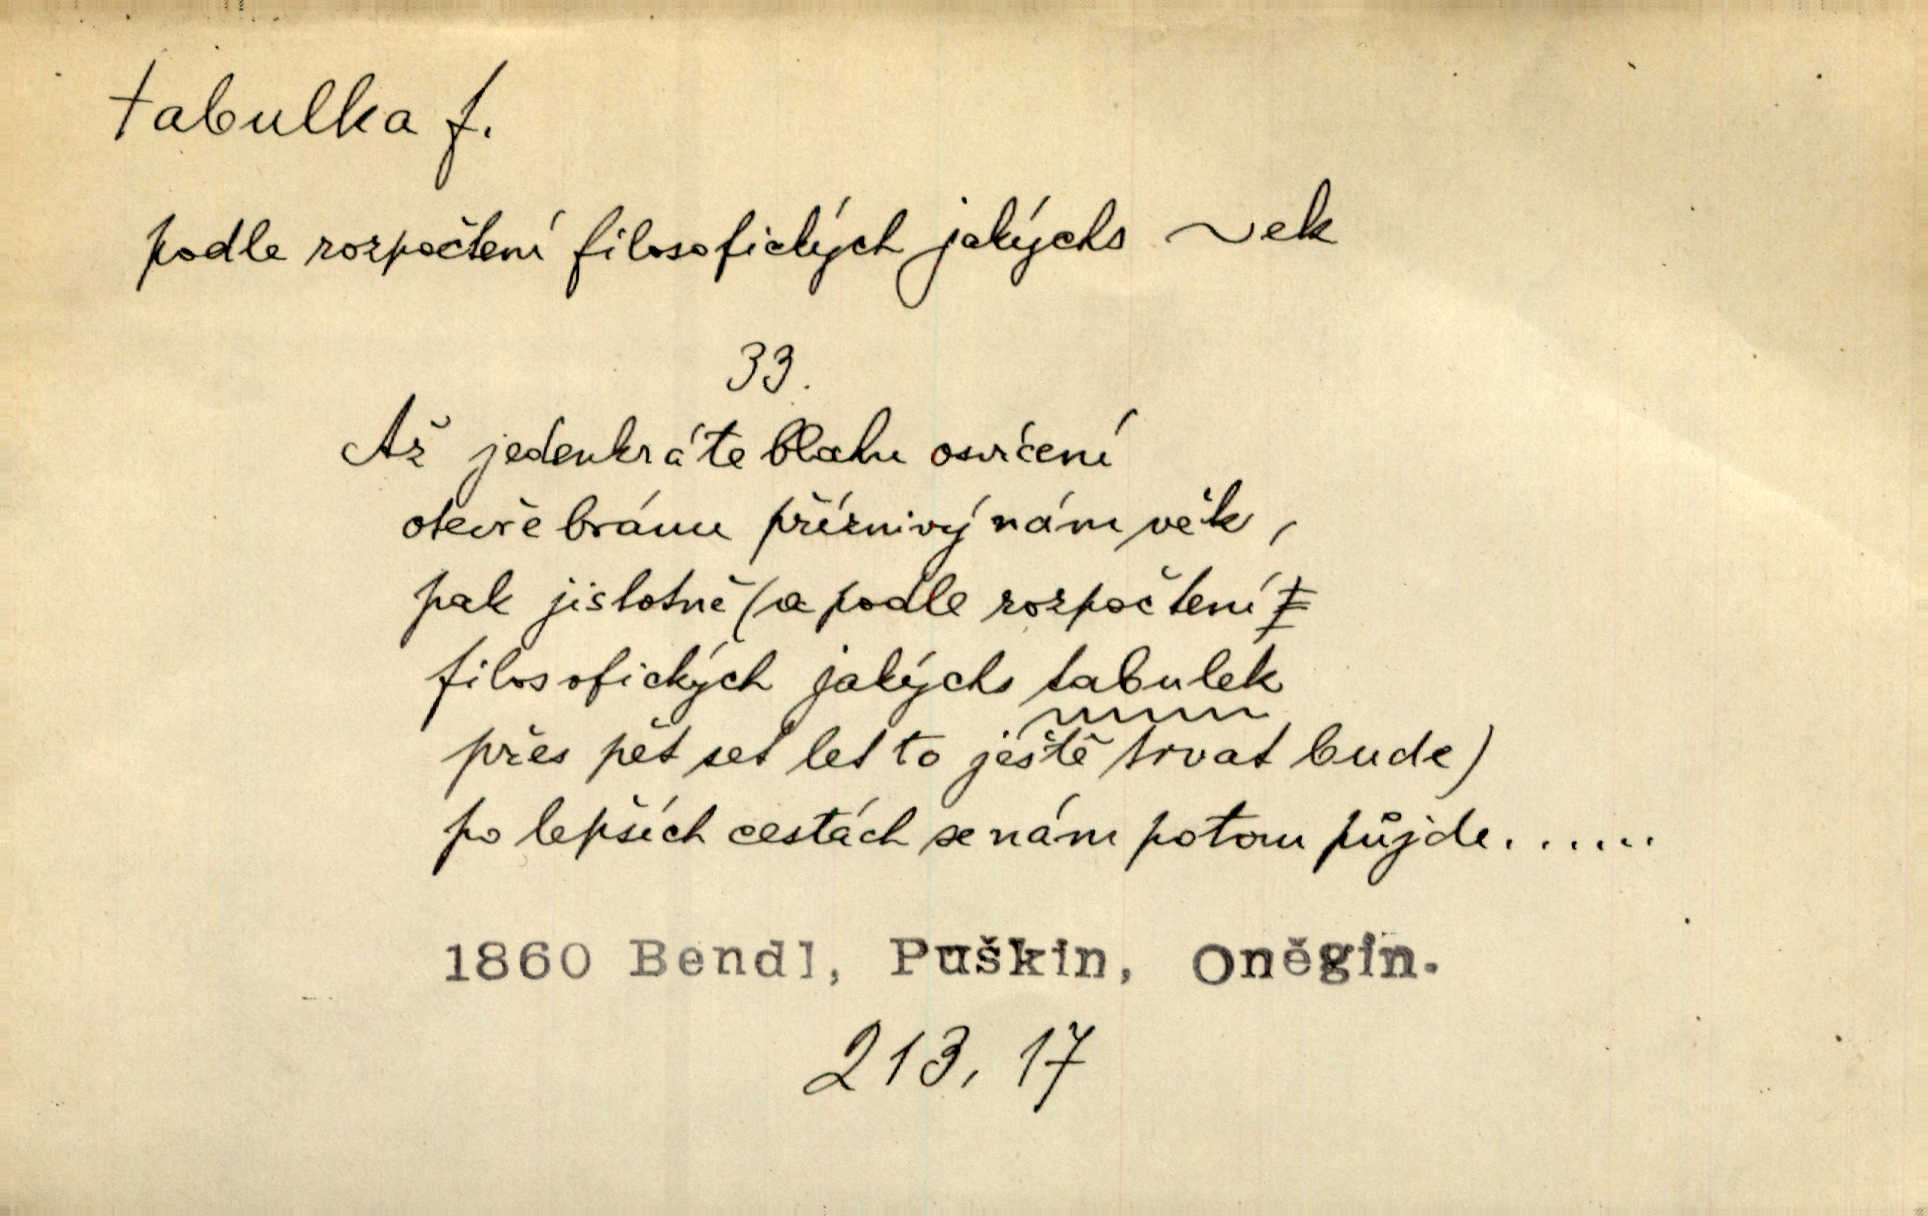 tabulka f.
podle rozpočtení filosofických jakýchs ~ek
33.
Až jedenkráte blahu osvícení
otevře bránu příznivý nám věk,
pak jistotně (a podle rozpočtení
filosofických jakýchs tabulek
přes pět set let to ještě trvat bude)
po lepších cestách se nám potom půjde......
1860 Bendl, Puškin, Oněgin.
213, 17